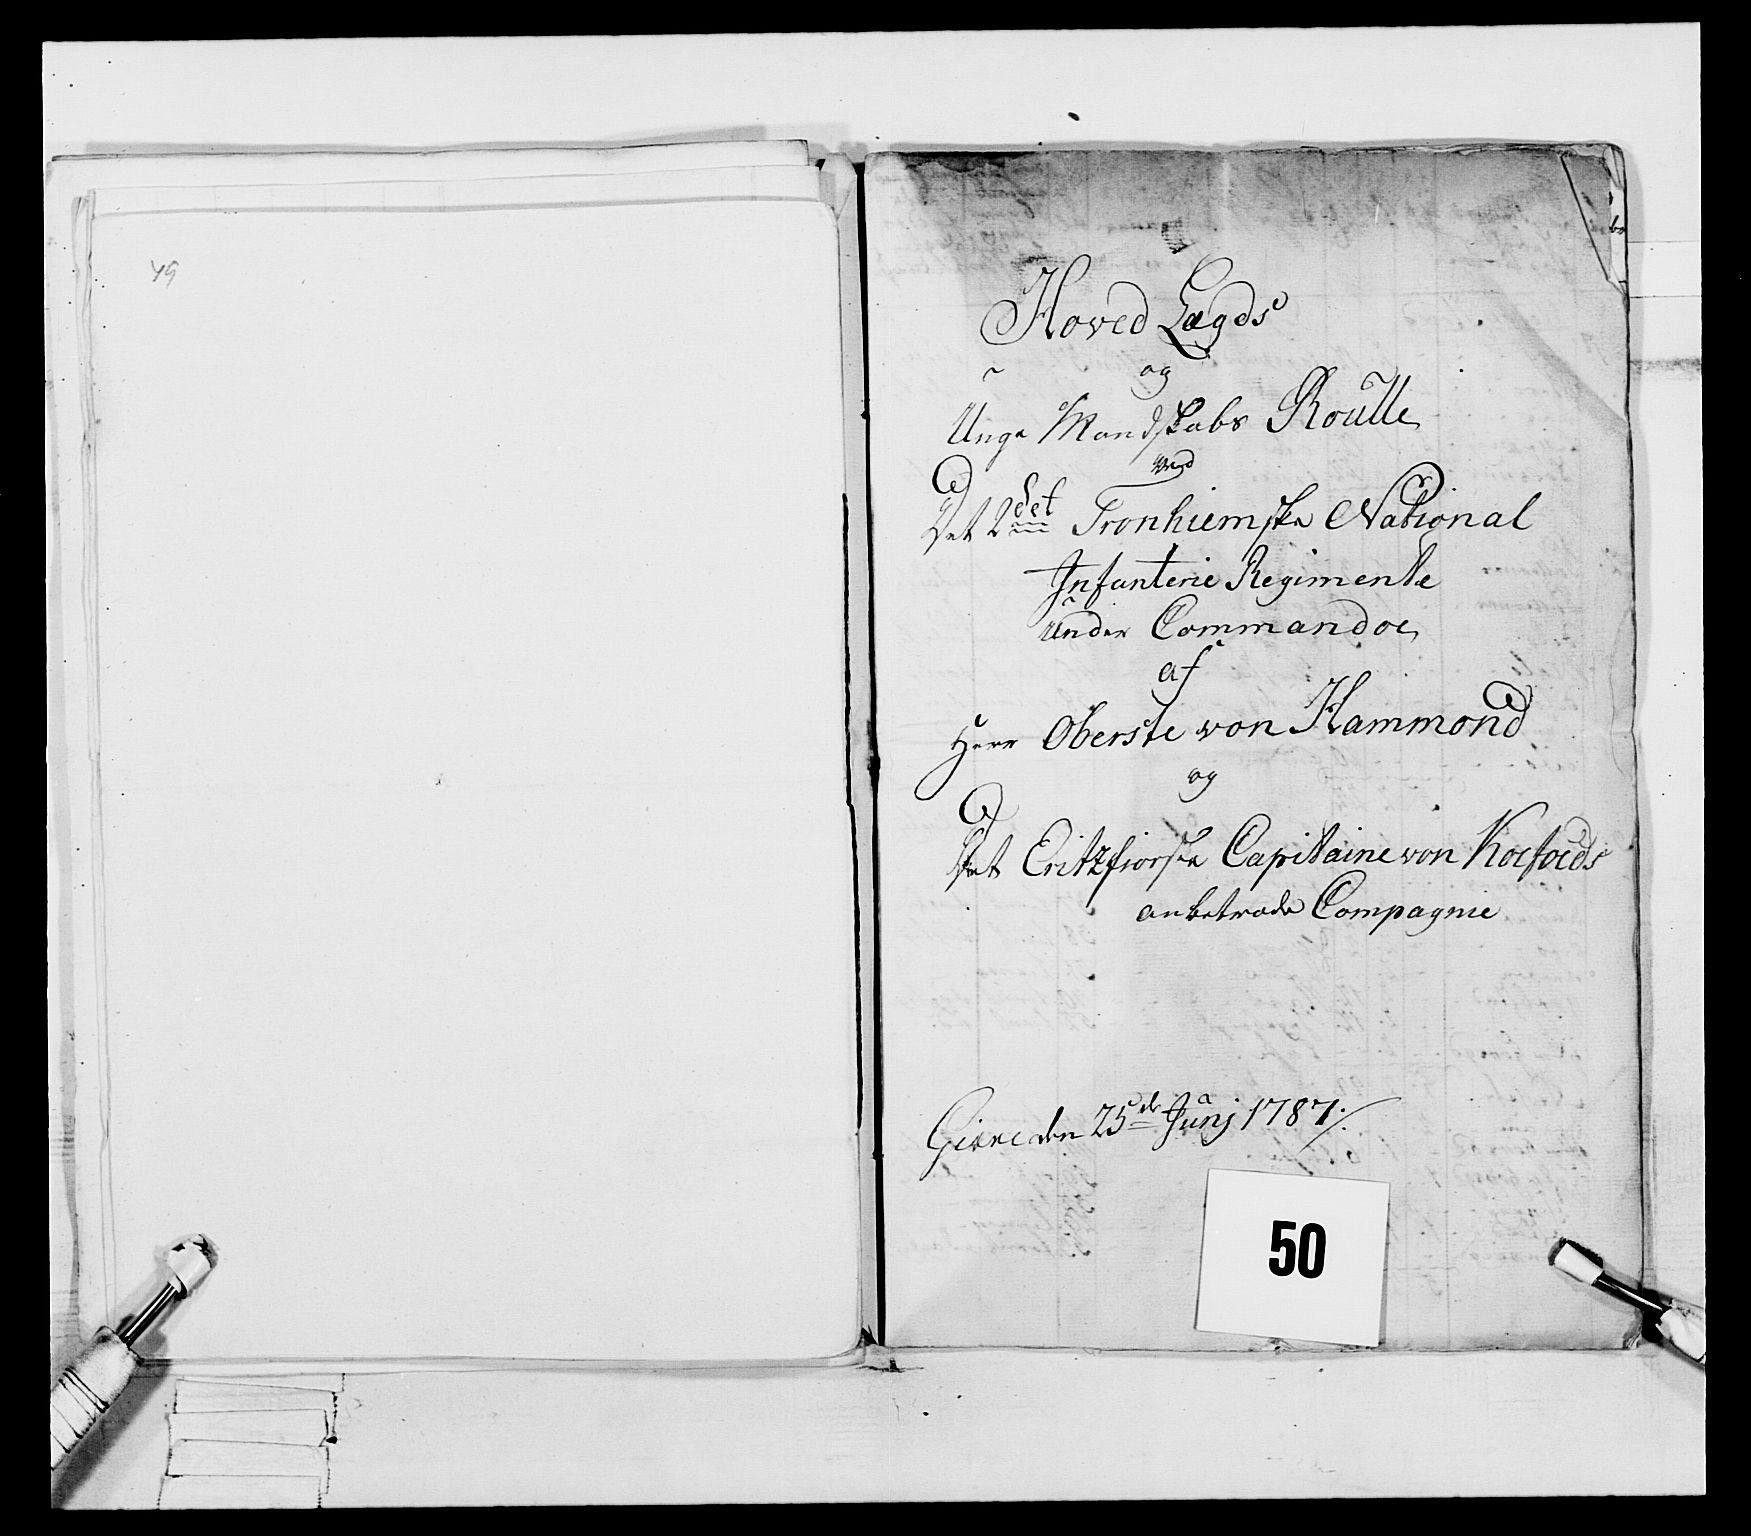 49
Hoved Lægds
og
Unge Mandskabs Roulle
ved
Det 2det Tronhiemske National
Infanterie Regimente
under Commandoe
af
Herr Oberste von Hammond
og
Det Eritzfiorske Capitaine von Koefoeds
anbetroede Compagnie
den 25de Junj 1787
50